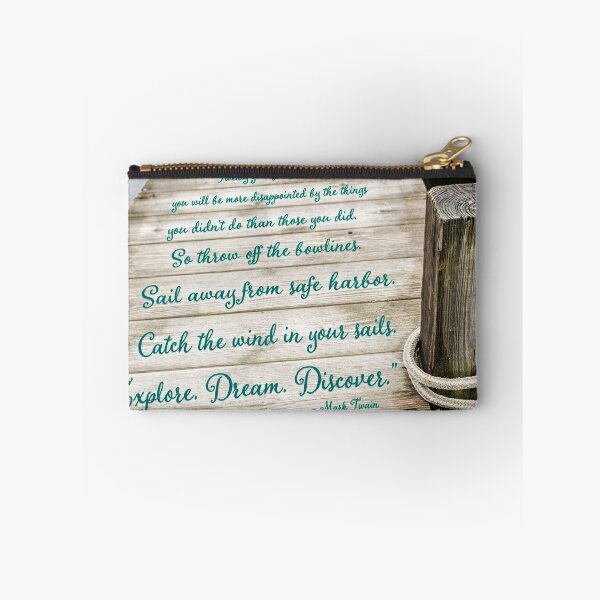 you will be more disappointed by the things
you didn't do than those you did.
So throw off the bowlines.
Sail away from safe harbor.
Catch the wind in your sails.
Explore. Dream. Discover."
- Mark Twain